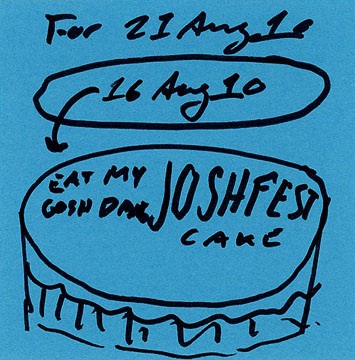 For 21 Aug 10
16 Aug 10
EAT MY
GOSH DARN JOSHFEST
CAKE